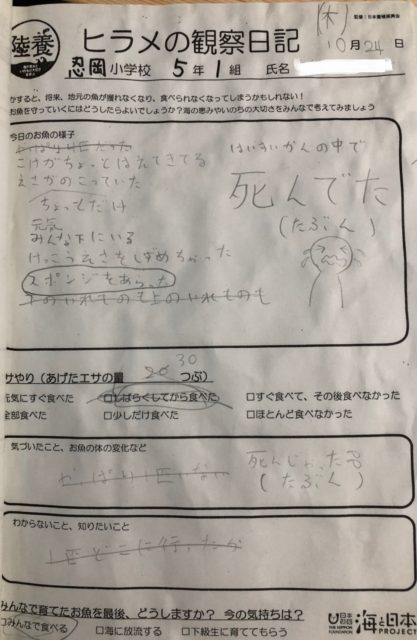 陸養
ヒラメの観察日記
(木)
監修:日本養殖振興会
10月24日
忍岡小学校 5年1組 氏名
かすると、将来、地元の魚が獲れなくなり、食べられなくなってしまうかもしれない!
お魚を守っていくにはどうしたらよいでしょうか?海の恵みやいのちの大切さをみんなで考えてみましょう
今日のお魚の様子
こけがちょっとはえてきてる
えさがのこっていた
ちょっとだけ
元気
みんな下にいる
けっこうえさをしずめちゃった
スポンジをあらった
下のいれものも上のいれものも
はいすいかんの中で
死んでた
(たぶん)
サやり(あげたエサの量 20 30 つぶ)
元気にすぐ食べた □しばらくしてから食べた □すぐ食べて、その後食べなかった
全部食べた □少しだけ食べた □ほとんど食べなかった
気づいたこと、お魚の体の変化など
やっぱり1匹いない
死んじゃった
(たぶん)
わからないこと、知りたいこと
1匹どこに行ったか
みんなで育てたお魚を最後、どうしますか? 今の気持ちは?
みんなで食べる □海に放流する □下級生に育ててもらう
日本財団
THE NIPPON FOUNDATION
海と日本
PROJECT